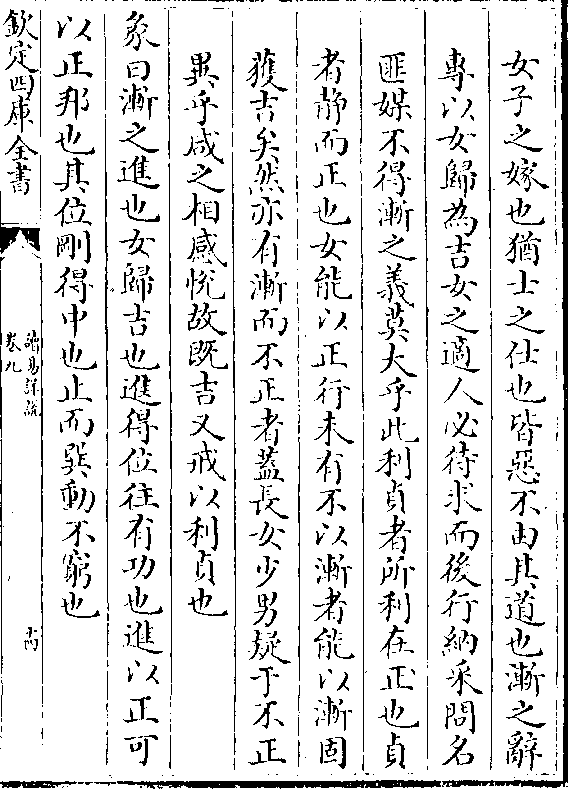 女子之嫁也猶士之仕也皆惡不由其道也漸之辭
專以女歸為吉女之適人必待求而後行納采問名
匪媒不得漸之義莫大乎此利貞者所利在正也貞
者静而正也女能以正行未有不以漸者能以漸固
獲吉矣然亦有漸而不正者蓋長女少男疑于不正
異乎咸之相感悅故既吉又戒以利貞也
彖曰漸之進也女歸吉也進得位往有功也進以正可
以正邦也其位剛得中也止而巽動不窮也
欽定四庫全書
讀易詳說
卷九